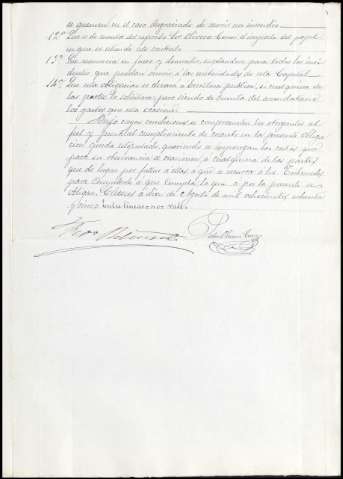 se quemaren en el caso desgraciado de haber un incendio.
12ª Que es de cuenta del Sr. Rivero Cano el importe del papel
en que se extiende este contrato.
13ª Que renuncia su fuero y domicilio, sujetándose para todos los inci-
dentes que puedan ocurrir a las autoridades de esta Capital.
14ª Que esta obligación se elevará a Escritura pública, si cualquiera de
las partes lo solicitara; pero siendo de cuenta del arrendatario
los gastos que esta ocasione.
Bajo cuyas condiciones se comprometen los otorgantes al
fiel y puntual cumplimiento de cuanto en la presente obliga-
ción queda estipulado, queriendo se impongan las costas que
para su observancia se causaren a cualquiera de las partes
que dé lugar por faltar a ellas a que se recurra a los Tribunales
para compelerle a que cumpla lo que por la presente se
obliga. Cáceres a diez de Agosto de mil ochocientos ochenta
y cinco.